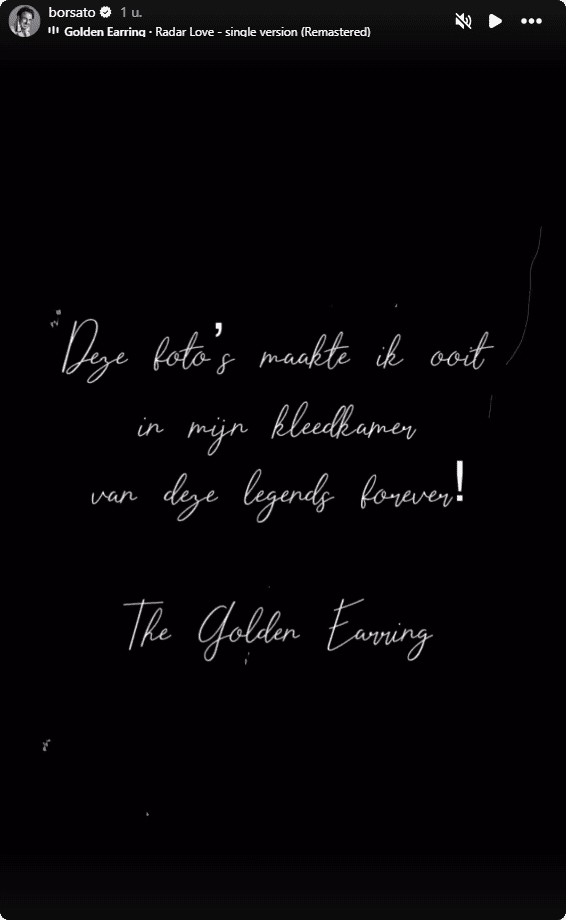 borsato 1 u.
Golden Earring · Radar Love - single version (Remastered)
Deze foto's maakte ik ooit
in mijn kleedkamer
van deze legends forever!
The Golden Earring